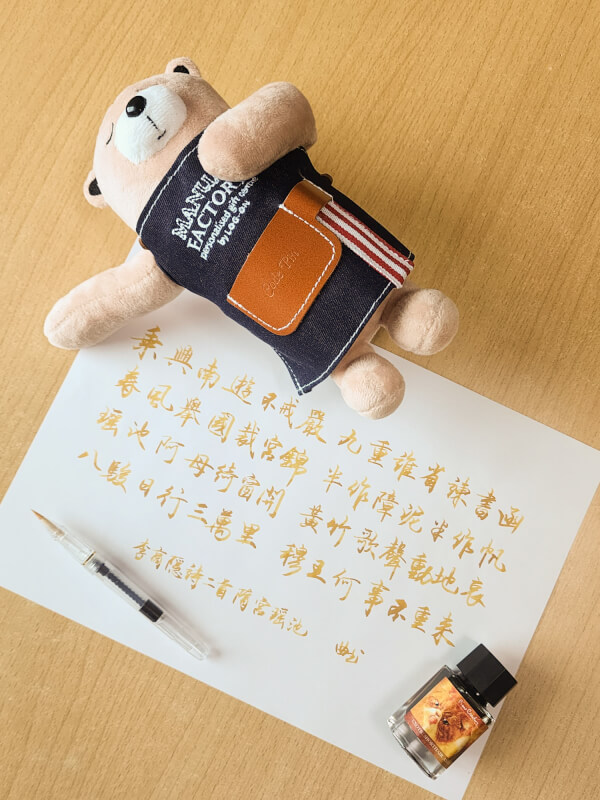 FACTORY
personalised gift
by LOG-ON
乘興南遊不戒嚴 九重誰省諫書函
春風舉國裁宮錦 半作障泥半作帆
瑤池阿母綺窗開 黃竹歌聲動地哀
八駿日行三萬里 穆王何事不重來
李商隱詩二首隋宮瑤池